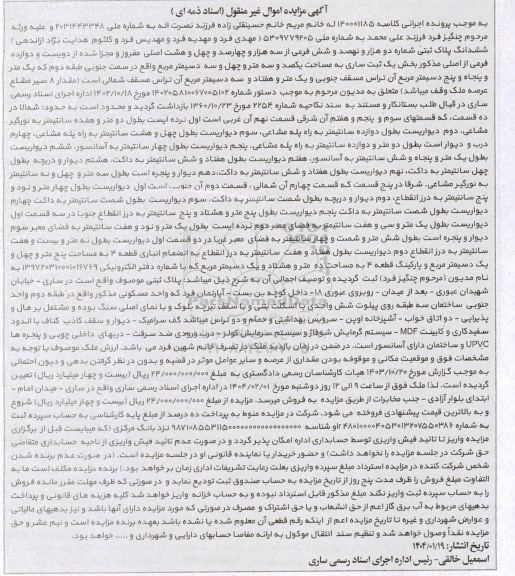 آگهی مزایده اموال غیر منقول (اسناد ذمه ای)
به موجب پرونده اجرایی کلاسه ۱۴۰۰۰۱۱۸۵ له خانم مریم خانم حسینقلی زاده فرزند نصرت اله به شماره ملی ۲۰۳۱۴۴۳۳۴۸ و علیه ورثه
مرحوم چنگیز فرد فرزند علی محمد به شماره ملی ۵۳۰۹۷۷۹۲۰۵ ( مهدی فرد و مهدیه فرد و مهدیس فرد و کلثوم هدایت نژاد ازاندهی )
ششدانگ پلاک ثبتی شماره دو هزار و نهصد و شش فرعی از سه هزار و چهارصد و چهل و هشت اصلی مفروز و مجزا شده از دویست و دوازده
فرعی از اصلی مذکور بخش یک ثبت ساری به مساحت یکصد و سه متر و چهل و سه دسیمتر مربع واقع در سمت جنوبی طبقه دوم که یک متر
و پنجاه و پنج دسیمتر مربع آن تراس مسقف جنوبی و یک متر و هفتاد و سه دسیمتر مربع آن تراس مسقف شمالی است (مقدار ۸ سیر مشاع
عرصه ملک وقف میباشد) متعلق به مدیون مرحوم به موجب دستور شماره ۱۴۰۲۰۵۸۱۰۰۶۷۰۰۵۱۰۲ مورخ ۱۴۰۲/۱۰/۱۸ اداره اجرای اسناد رسمی
ساری در قبال طلب بستانکار و مستند به سند نکاحیه شماره ۲۲۵۴ مورخ ۱۳۶۰/۱۰/۲۳ بازداشت گردید و محدود است به حدود: شمالا در
ده قسمت، که قسمتهای سوم و پنجم و هفتم آن شرقی قسمت نهم آن غربی است اول نرده ایست بطول دو متر و هفده سانتیمتر به نورگیر
مشاعی، دوم دیواریست بطول دوازده سانتیمتر به راه پله مشاعی، سوم دیواریست بطول چهل و هشت سانتیمتر به راه پله مشاعی، چهارم
درب و دیوار است بطول دو متر و دوازده سانتیمتر به راه پله مشاعی، پنجم دیواریست بطول چهار سانتیمتر به آسانسور، ششم دیواریست
بطول یک متر و پنجاه و شش سانتیمتر به آسانسور، هفتم دیواریست بطول هفتاد و شش سانتیمتر به داکت، هشتم دیوار و دریچه بطول
چهل سانتیمتر به داکت، نهم دیواریست بطول هفتاد و شش سانتیمتر به داکت،دهم دیوار و پنجره است بطول سه متر و چهل و نه سانتیمتر
به نورگیر مشاعی. شرقا در پنج قسمت که قسمت چهارم آن شمالی ، قسمت دوم آن جنوبی است اول دیواریست بطول چهار متر و نود و
پنج سانتیمتر به درز انقطاع، دوم دیوار و دریچه بطول شصت سانتیمتر به داکت، سوم دیواریست بطول شصت سانتیمتر به داکت چهارم
دیواریست بطول شصت سانتیمتر به داکت پنجم دیواریست بطول پنج متر و هشتاد و پنج سانتیمتر به درز انقطاع جنوبا در سه قسمت اول
دیواریست بطول یک متر و سی و هفت سانتیمتر به فضای معبر دوم نرده ایست بطول یک متر و نود و هفت سانتیمتر به فضای معبر سوم
دیوار و پنجره است بطول شش متر و شصت و چهار سانتیمتر به فضای معبر غربا در دو قسمت اول دیواریست بطول نه متر و بیست و هفت
سانتیمتر به درز انقطاع دوم دیواریست بطول هفتاد و هفت سانتیمتر به درز انقطاع به انضمام انباری قطعه ۴ به مساحت پنج متر و چهل و
یک دسیمتر مربع و پارکینگ قطعه ۴ به مساحت ده متر و هشتاد و یک دسیمتر مربع که با شماره دفتر الکترونیکی ۱۳۹۷۲۰۳۱۰۰۰۱۰۱۶۷۶۹ به
نام مدیون (مرحوم چنگیز فرد) ثبت گردیده و توصیف اجمالی آن به شرح ذیل میباشد: پلاک ثبتی موصوف واقع است در ساری - خیابان
شهبندان عبوری - بعد از میدان - روبروی عبوری ۱۸ - داخل کوچه بن بست - آپارتمان فرد که واحد مسکونی مذکور واقع در طبقه دوم واحد
جنوبی ساختمان سه طبقه روی پیلوت شش واحدی با اسکلت بتنی و با سقف تیرچه بلوک و با نمای اصلی سنگ بوده و مشتمل بر هال و
پذیرایی - دو اتاق خواب - آشپزخانه اوپن - سرویس بهداشتی و حمام و دو تراس میباشد کف سرامیک - دیوار و سقف کاذب کناف با اندود
سفیدکاری و کابینت MDF - سیستم گرمایش شوفاژ و سیستم سرمایش کولر - درب ورودی ضد سرقت - دربهای داخلی چوبی و پنجره ها
UPVC و ساختمان دارای آسانسور است. در ضمن در زمان بازدید ملک در تصرف خانم شهین فرد می باشد. ارزش ملک موصوف با توجه به
مشخصات فوق و موقعیت مکانی و موقوفه بودن مقداری از عرصه و سایر عوامل موثر در قضیه و بدون در نظر گرفتن بدهی و دیون احتمالی
به موجب گزارش مورخ ۱۴۰۳/۱۰/۲۰ هیات کارشناسان رسمی دادگستری به مبلغ ۲۴/۰۰۰/۰۰۰/۰۰۰ ریال (بیست و چهار میلیارد ریال) تعیین
گردیده است. لذا ملک فوق از ساعت ۹ الی ۱۲ روز دوشنبه مورخ ۱۴۰۴/۰۲/۰۱ در اداره اجرای اسناد رسمی ساری واقع در ساری - میدان امام -
ابتدای بلوار آزادی - جنب مخابرات از طریق مزایده به فروش میرسد. مزایده از مبلغ ۲۴/۰۰۰/۰۰۰/۰۰۰ ریال (بیست و چهار میلیارد ریال) شروع
و به بالاترین قیمت پیشنهادی فروخته می شود. شرکت در مزایده منوط به پرداخت ده درصد از مبلغ پایه کارشناسی به حساب سپرده ثبت
مزایده واریز تا تائید فیش واریزی توسط حسابداری اداره امکان پذیر گردد و در صورت عدم تائید فیش واریزی از ناحیه حسابداری متقاضی
حق شرکت در جلسه مزایده را نخواهد داشت) و حضور خریدار یا نماینده قانونی او در جلسه مزایده است. (در صورت عدم برنده شدن
شخص شرکت کننده در مزایده استرداد مبلغ سپرده واریزی بعلت رعایت تشریفات اداری زمان بر خواهد بود.) برنده مزایده مکلف است ما به
التفاوت مبلغ فروش را ظرف مدت پنج روز از تاریخ مزایده به حساب صندوق ثبت تودیع نماید و در صورتی که ظرف مهلت مقرر مانده فروش
را به حساب سپرده ثبت واریز نکند مبلغ مذکور قابل استرداد نبوده و به حساب خزانه واریز خواهد شد کلیه هزینه های قانونی و پرداخت
بدهیهای مربوط به آب برق گاز اعم از حق انشعاب و یا حق اشتراک و مصرف در صورتی که مورد مزایده دارای آنها باشد و نیز بدهیهای مالیاتی
و عوارض شهرداری و غیره تا تاریخ مزایده اعم از اینکه رقم قطعی آن معلوم شده یا نشده باشد بعهده برنده مزایده است و نیم عشر و حق
مزایده نقداً وصول خواهد شد و تنظیم سند انتقال موکول به ارائه مفاصا حسابهای دارایی و شهرداری و ..... خواهد بود.
تاریخ انتشار: ۱۴۰۴/۰۱/۱۹
اسمعیل خالقی- رئیس اداره اجرای اسناد رسمی ساری